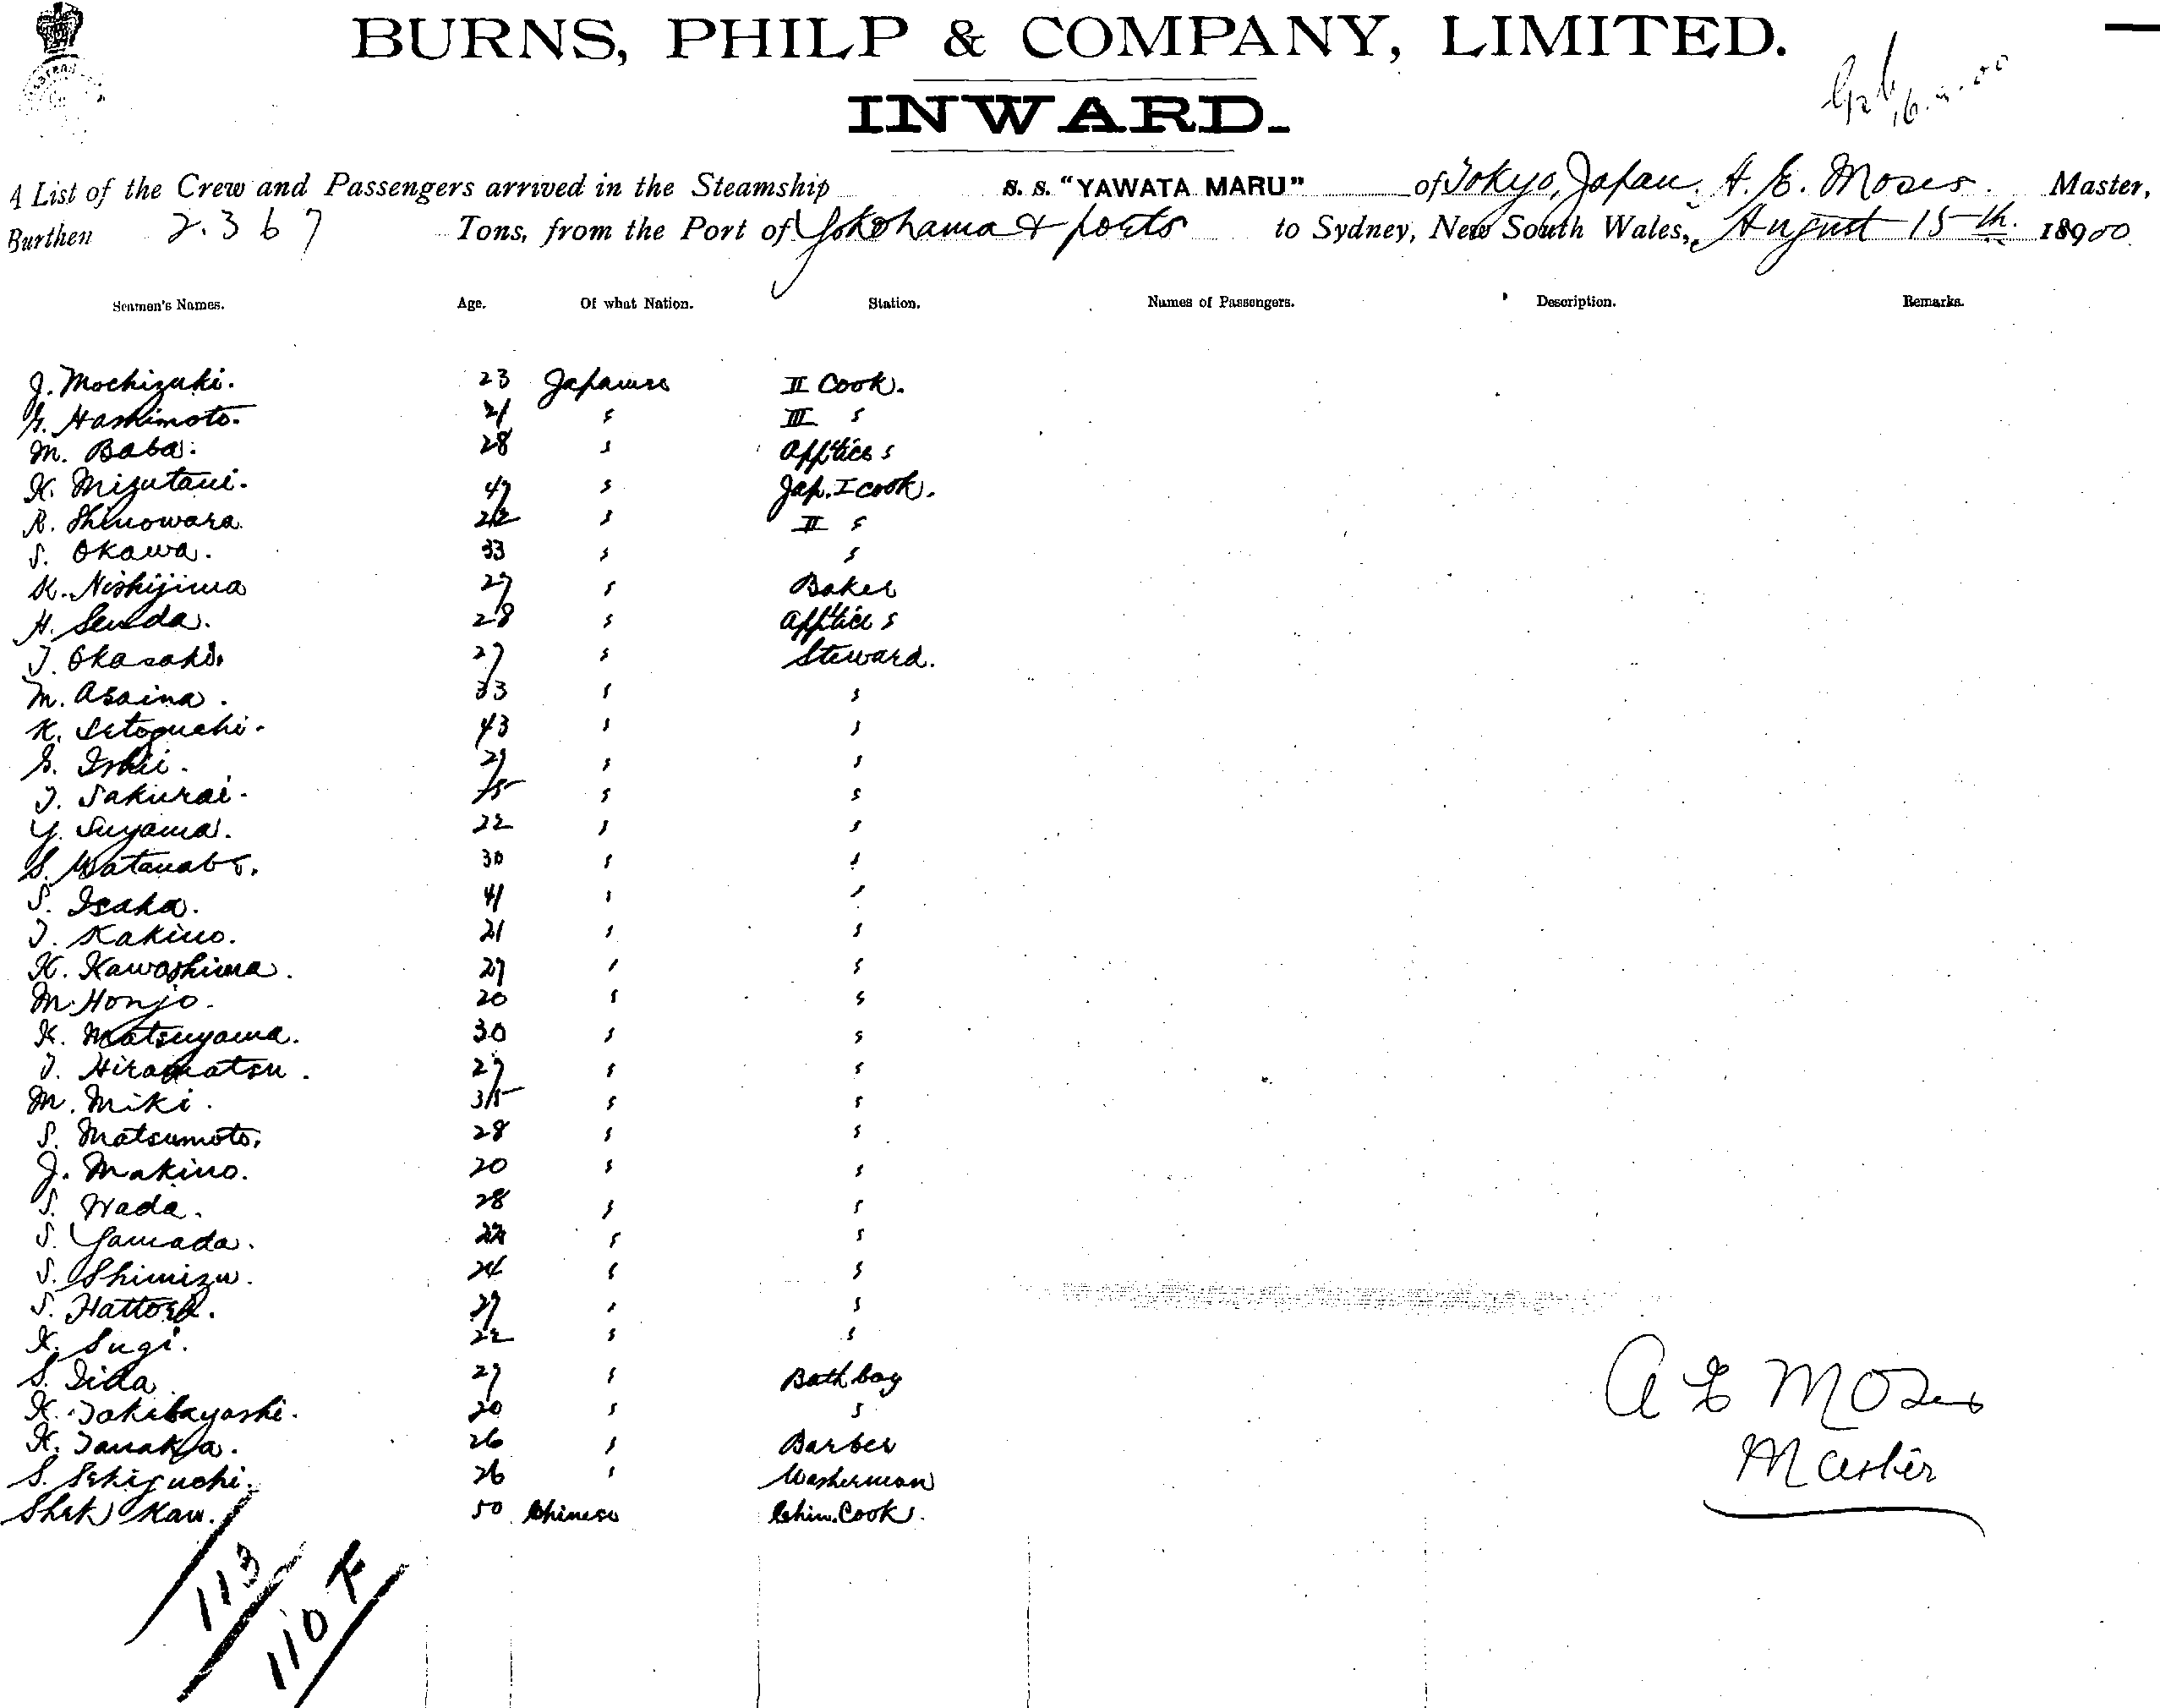 BURNS, PHILP & COMPANY, LIMITED.
INWARD.
A List of the Crew and Passengers arrived in the Steamship S. S. "YAWATA MARU" of Tokyo, Japan. A. E. Moses. Master,
Burthen 2.367 Tons, from the Port of Yokohama & ports to Sydney, New South Wales, August 15th. 18900
Seamen's Names. Age. Of what Nation. Station. Names of Passengers. Description. Remarks.
J. Mochizuki. 23 Japanese II Cook.
G. Hashimoto. 21 s III s
M. Baba. 28 s Apptice s
K. Mizutani. 47 s Jap. I cook.
R. Shinowara 22 s II s
S. Okawa. 33 s s
K. Nishijima 27 s Baker
H. Senda. 28 s Apptice s
T. Okasaki. 27 s Steward.
M. Asaina. 33 s s
K. Setoguchi. 43 s s
S. Ishii. 29 s s
T. Sakurai. s s
Y. Suyama. 22 s s
S. Watanabe. 30 s s
S. Isaka. 41 s s
T. Kakino. 21 s s
K. Kawashima. 27 s s
M. Honjo. 20 s s
K. Matsuyama. 30 s s
T. Hiramatsu. 27 s s
M. Miki. 35 s s
S. Matsumoto. 28 s s
J. Makino. 20 s s
S. Wada. 28 s s
S. Yamada. s s
S. Shimizu. 24 s s
S. Hattori. 29 s s
K. Sugi. 22 s s
S. Iida 27 s Bath boy
K. Takebayashi. 20 s s
K. Tanaka. 26 s Barber
S. Sekiguchi. 26 s Washerman
Shek Kaw. 50 Chinese Chin. Cook.
A E Moses
Master
113
110 F